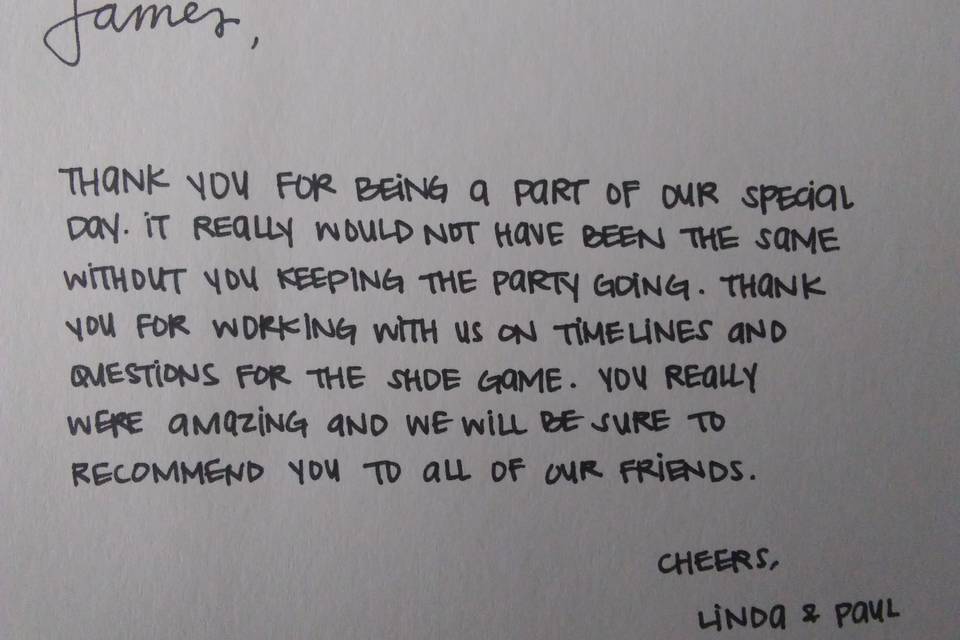 James,
THANK YOU FOR BEING A PART OF OUR SPECIAL
DAY. IT REALLY WOULD NOT HAVE BEEN THE SAME
WITHOUT YOU KEEPING THE PARTY GOING. THANK
YOU FOR WORKING WITH US ON TIMELINES AND
QUESTIONS FOR THE SHOE GAME. YOU REALLY
WERE AMAZING AND WE WILL BE SURE TO
RECOMMEND YOU TO ALL OF OUR FRIENDS.
CHEERS,
LINDA & PAUL